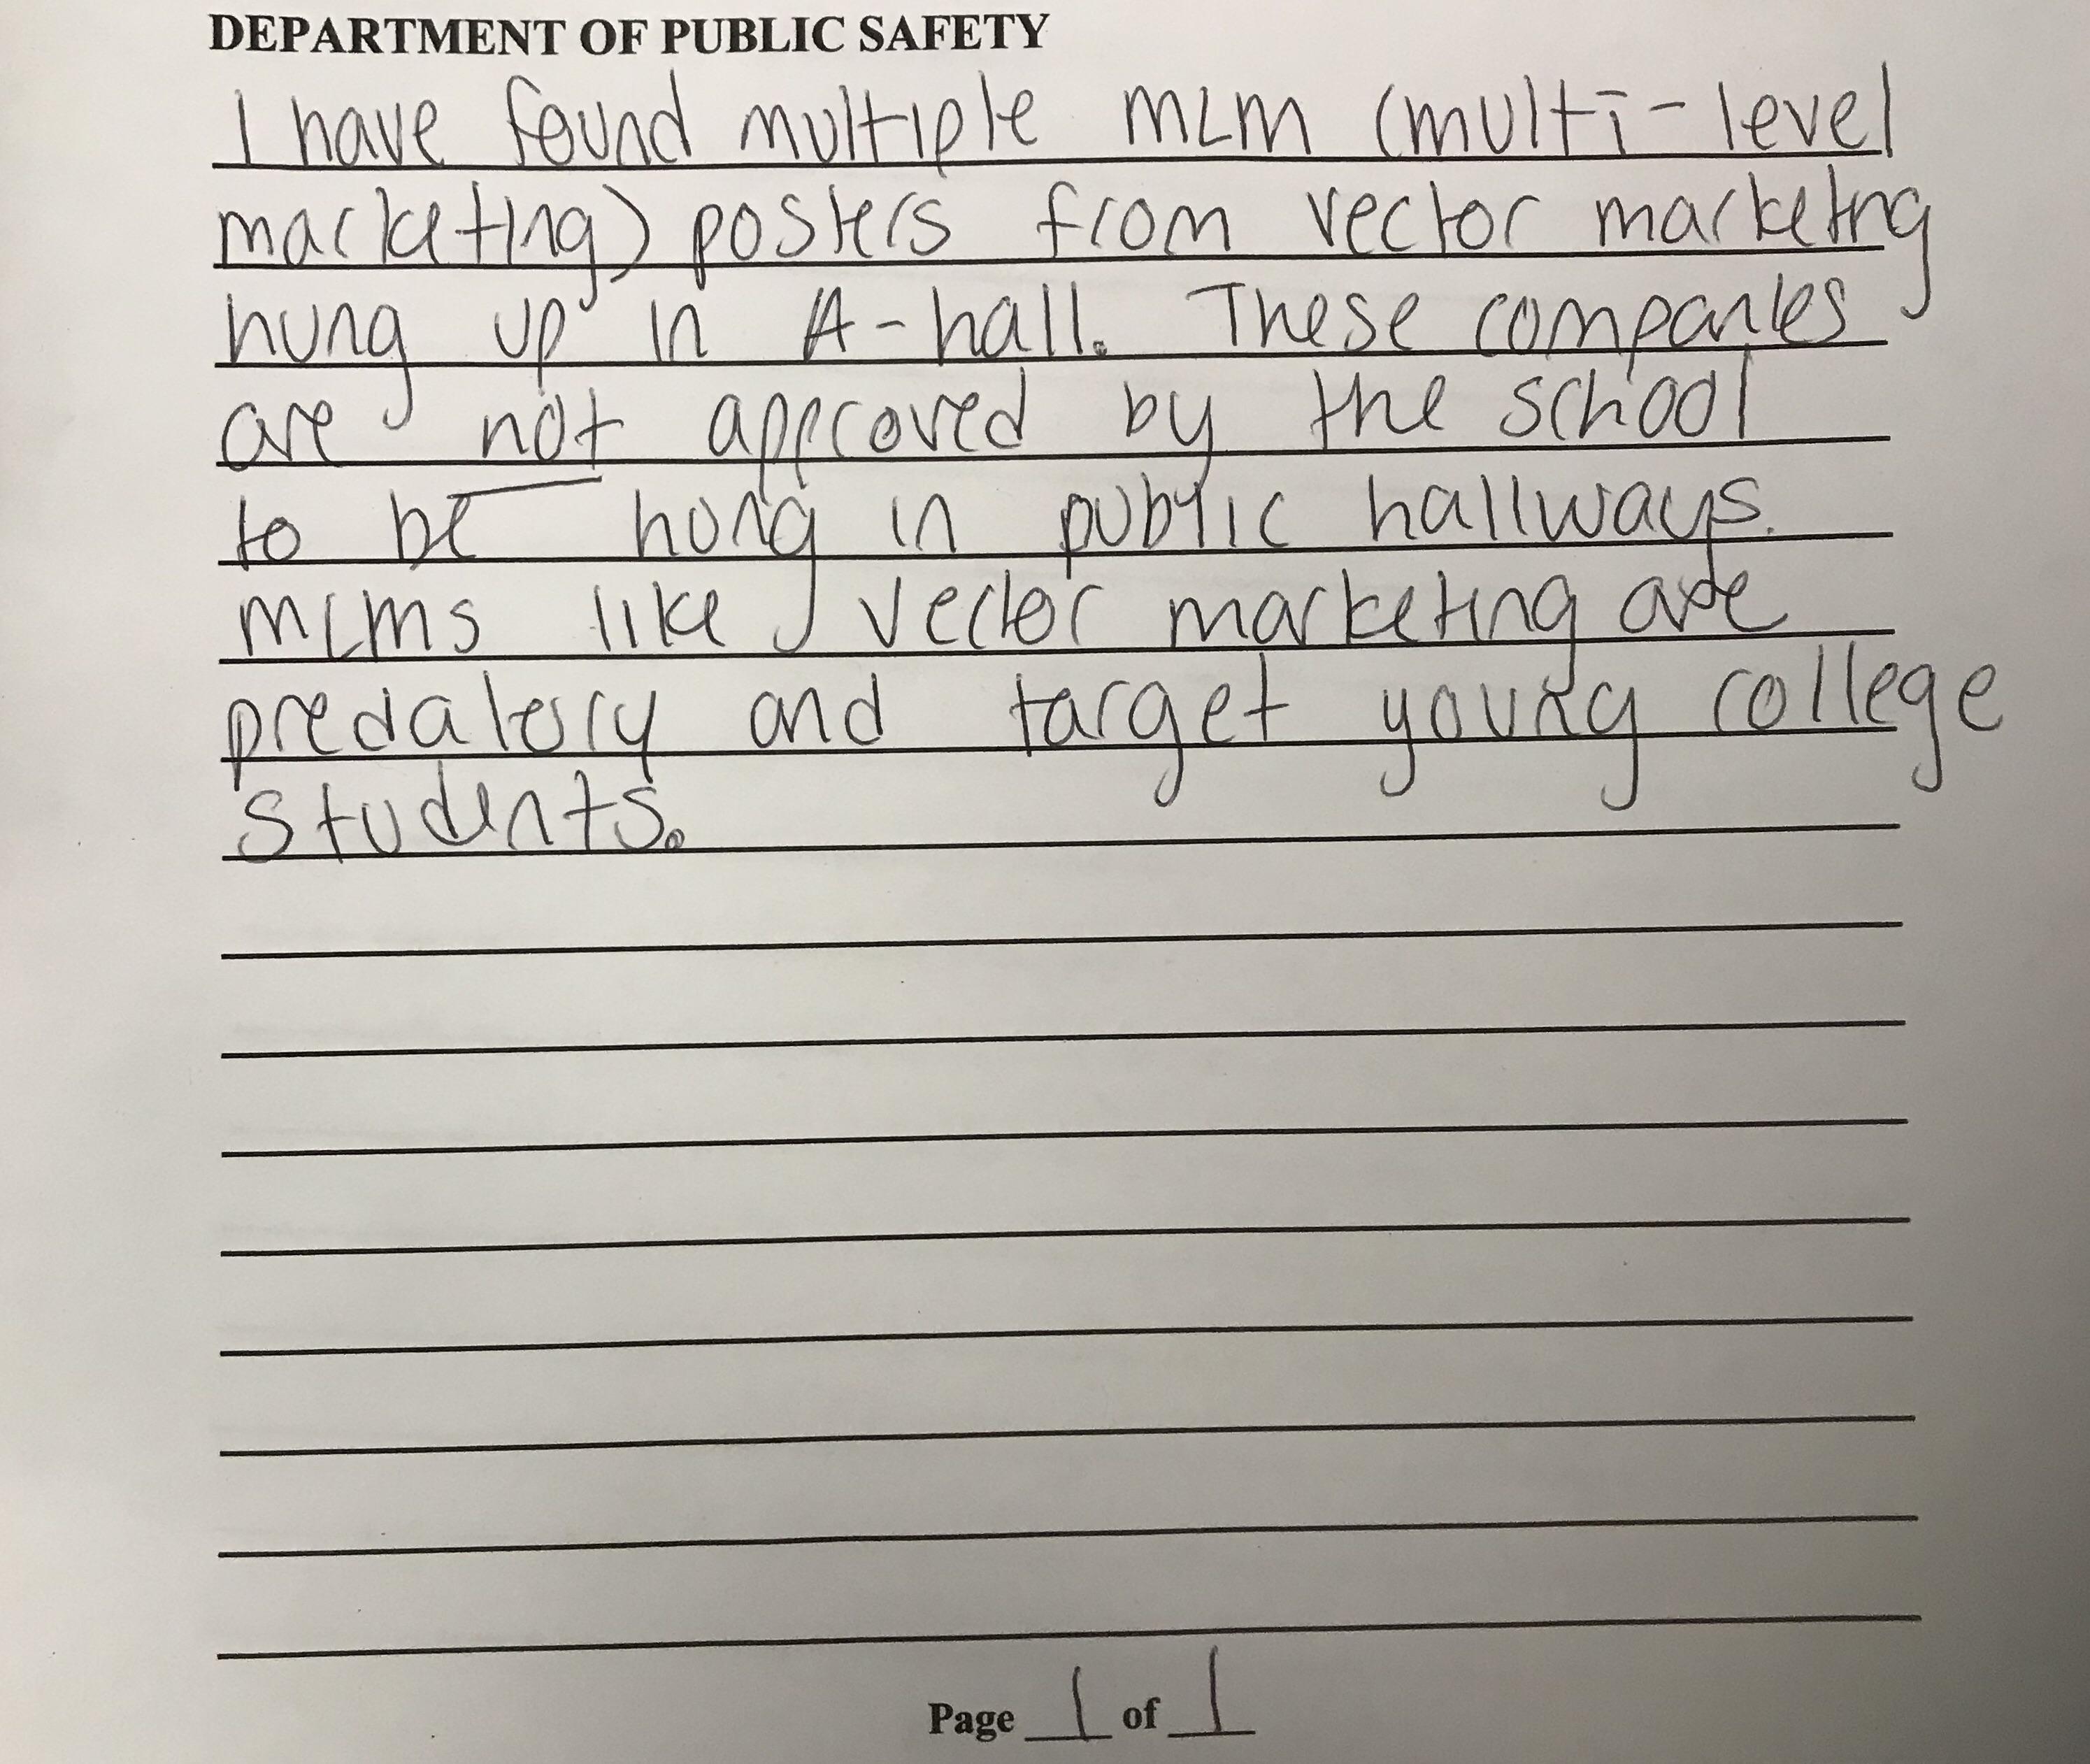 DEPARTMENT OF PUBLIC SAFETY
I have found multiple MLM (multi-level
marketing) posters from vector marketing
hung up in A-hall. These companies
are not approved by the school
to be hung in public hallways.
MLMs like vector marketing are
predatory and target young college
students.
Page 1 of 1